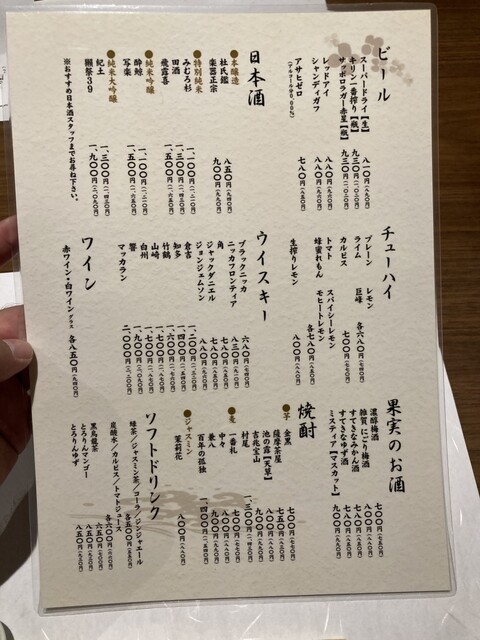 ビール
スーパードライ【生】 八一〇円(八九〇円)
キリン一番搾り【瓶】 九三〇円
サッポロラガー赤星【瓶】 九三〇円
レッドアイ 八八〇円
シャンディガフ 八八〇円
アサヒゼロ 七八〇円
(アルコール0.00%)
日本酒
●本醸造
杜氏鑑 八五〇円(九四〇円)
楽器正宗 九〇〇円(九九〇円)
●特別純米
みむろ杉 一、一〇〇円(一、二一〇円)
田酒 一、三〇〇円(一、四三〇円)
飛露喜 一、五〇〇円(一、六五〇円)
●純米吟醸
酔鯨 一、一〇〇円(一、二一〇円)
写楽 一、五〇〇円(一、六五〇円)
●純米大吟醸
紀土 一、三〇〇円(一、四三〇円)
獺祭39 一、九〇〇円(二、〇九〇円)
※おすすめ日本酒スタッフまでお尋ね下さい。
チューハイ
プレーン レモン
ライム 巨峰 各六八〇円
カルピス 七〇〇円
トマト スパイシーレモン
蜂蜜れもん モヒートレモン 各七八〇円
生搾りレモン 八〇〇円
ウイスキー
ブラックニッカ 六八〇円
ニッカフロンティア 八三〇円
角 七八〇円
ジャックダニエル 八五〇円
ジョンジェムソン 八八〇円
倉吉 一、二〇〇円
知多 一、四〇〇円
竹鶴 一、六〇〇円
山崎 一、七〇〇円
白州 一、七〇〇円
響 一、九〇〇円
マッカラン 二、〇〇〇円
ワイン
赤ワイン・白ワイン グラス 各八五〇円(九四〇円)
果実のお酒
濃醇梅酒 七〇〇円
雑賀 にごり梅酒 七八〇円
すてきなみかん酒 七八〇円
すてきなゆず酒 七八〇円
ミスティア【マスカット】 九〇〇円
焼酎
●芋
金黒 七〇〇円
薩摩茶屋 七五〇円
池の露【天草】 八〇〇円
吉兆宝山 九〇〇円
村尾 一、三〇〇円
●麦
一番札 七〇〇円
中々 八〇〇円
兼八 九〇〇円
百年の孤独 一、四〇〇円
●ジャスミン
茉莉花 八〇〇円
ソフトドリンク
緑茶/ジャスミン茶/コーラ/ジンジャエール 各五〇〇円
炭酸水/カルピス/トマトジュース 各六〇〇円
黒烏龍茶 六五〇円
とろりんマンゴー 八五〇円
とろりんゆず 八五〇円